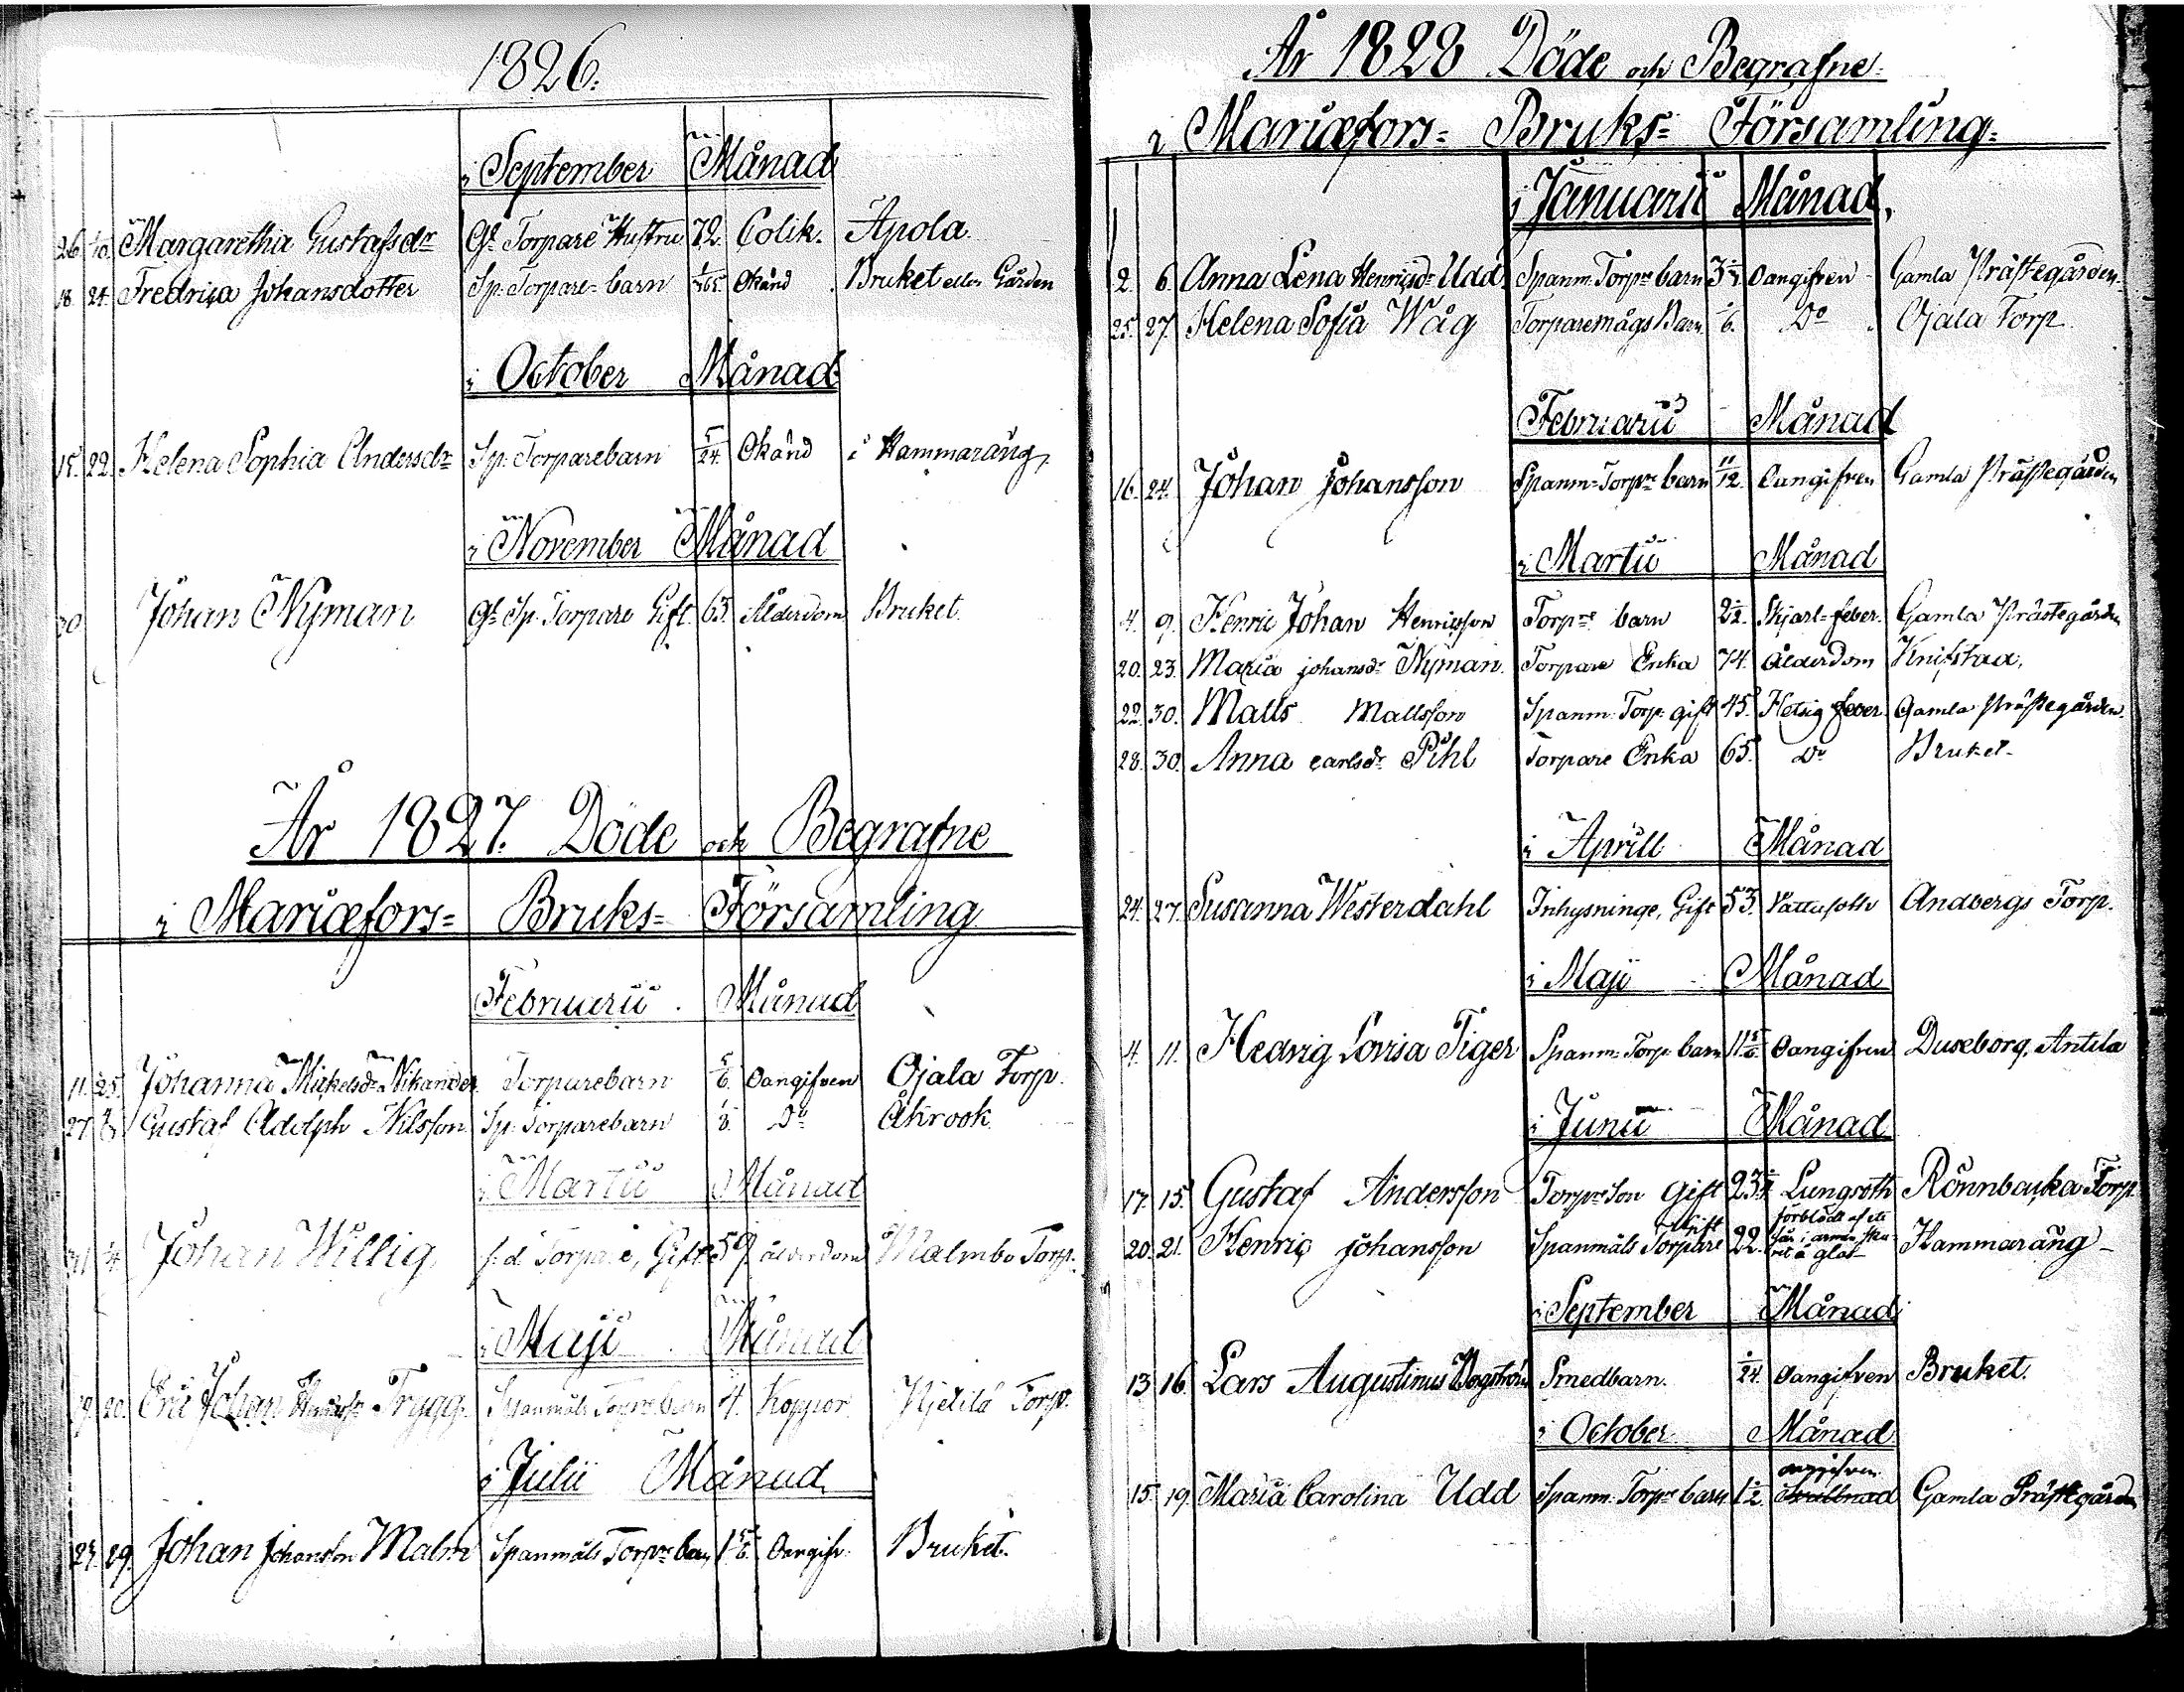 1826.
i September Månad
26. 10. Margaretha Gustafsdr Gl. Torpare Hustru 72. Colik. Apola.
18. 24. Fredrica Johansdotter Sp. Torpare-barn 1/365 Okänd Bruket eller Gården
i October Månad
15. 22. Helena Sophia Andersdr Sp. Torparebarn 5/24. Okänd i Hammaräng
i November Månad
20 Johan Nyman Gl. Sp. Torpare Gift. 63. Ålderdom Bruket.
År 1827. Döde och Begrafne
i Mariæfors= Bruks= Församling
Februarii Månad
11. 25. Johanna Mickelsdr Nikander Torparebarn 5/6. Oangifven Ojala Torp.
27. Gustaf Adolph Nilsson Sp. Torparebarn 1/8. Do Åkrook.
i Martii Månad
31 Johan Willig f.d. Torpare, Gift 59 ålderdom Malmbo Torp.
i Maji Månad
19. 20. Eric Johan Trygg. Spanmåls Torpre barn 4. Koppor Kjetilä Torp.
i Julii Månad
29. Johan Johansson Malm Spanmåls Torpre barn 1 5/6. Oangifv. Bruket.
År 1828 Döde och Begrafne
i Mariæfors= Bruks= Församling=
i Januarii Månad.
2. 6. Anna Lena Henricsdr Udd Spanm. Torpre barn Oangifven Gamla Prästegården.
25. 27. Helena Sofia Wåg Torparemågs Barn 1/6. Do Ojala Torp.
Februarii Månad
16. 24. Johan Johansson Spanm-Torpre barn 11/12. Oangifven Gamla Prästegården
i Martii Månad
4. 9. Henric Johan Henricsson Torpre barn 2 1/2. Skjarl-feber. Gamla Prästegården
20. 23. Maria Johansdr Nyman. Torpare Enka 74. Ålderdom Knifstad.
22. 30. Matts Mattsson Spanm. Torp. gift 45. Hetsig feber Gamla Prästegården.
28. 30. Anna Carlsdr Pihl Torpare Enka 65. Do Bruket.
i Aprill Månad
24. 27. Susanna Westerdahl Inhysninge, Gift 53. Vattusoth Andbergs Torp.
i Maji Månad
4. 11. Hedvig Lovisa Tiger Spanm. Torp. barn 11 5/6. Oangifven Duseborg, Antila
i Junii Månad
17. 15. Gustaf Andersson Torpre Son Gift Lungsoth Rönnbacka Torp.
20. 21. Henric Johansson Spanmåls Torpare Gift 22. förblödt af ett sår i armen skurit å glas Hammaräng
i September Månad
13 16. Lars Augustinus Bergström Smedbarn. 1/24. Oangifven Bruket.
i October Månad
15. 19. Maria Carolina Udd Spanm. Torpre barn 1 1/2. oangifven Gamla Prästegården